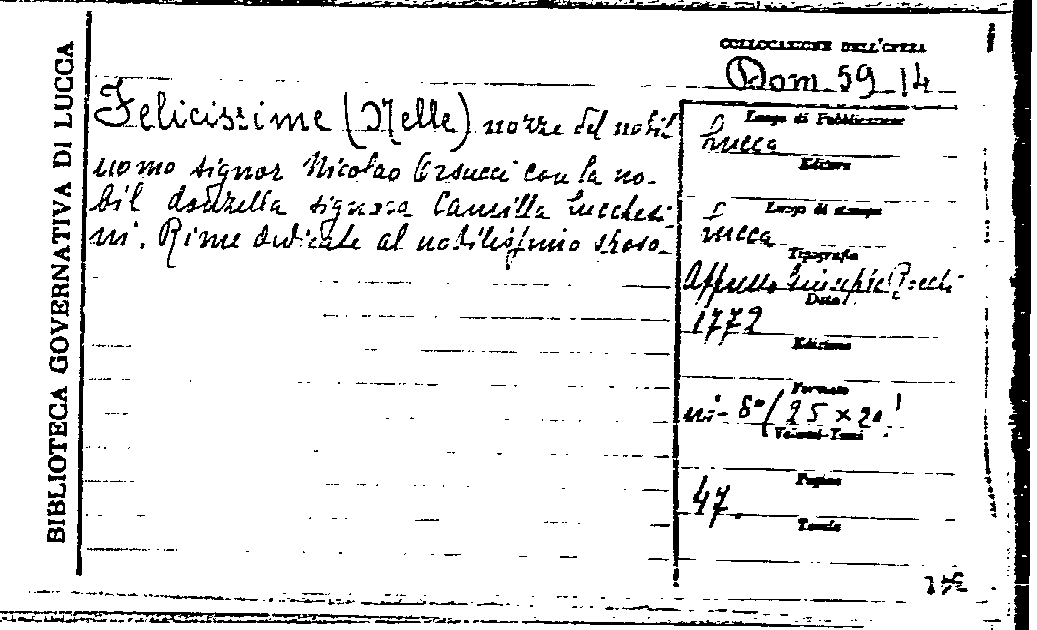 BIBLIOTECA GOVERNATIVA DI LUCCA
COLLOCAZIONE DELL'OPERA
Dom. 59. 14
Felicissime (Nelle) nozze del nobil
uomo signor Nicolao Orsucci con la no-
bil donzella signora Camilla Lucchesi-
ni. Rime dedicate al nobilissimo sposo.
Luogo di Pubblicazione
Lucca
Editore
Luogo di stampa
Lucca
Tipografia
appresso Giuseppe Rocchi
Data
1772
Edizione
Formato
in-8° (25 x 20)
Volumi-Tomi
Pagine
47.
Tavole